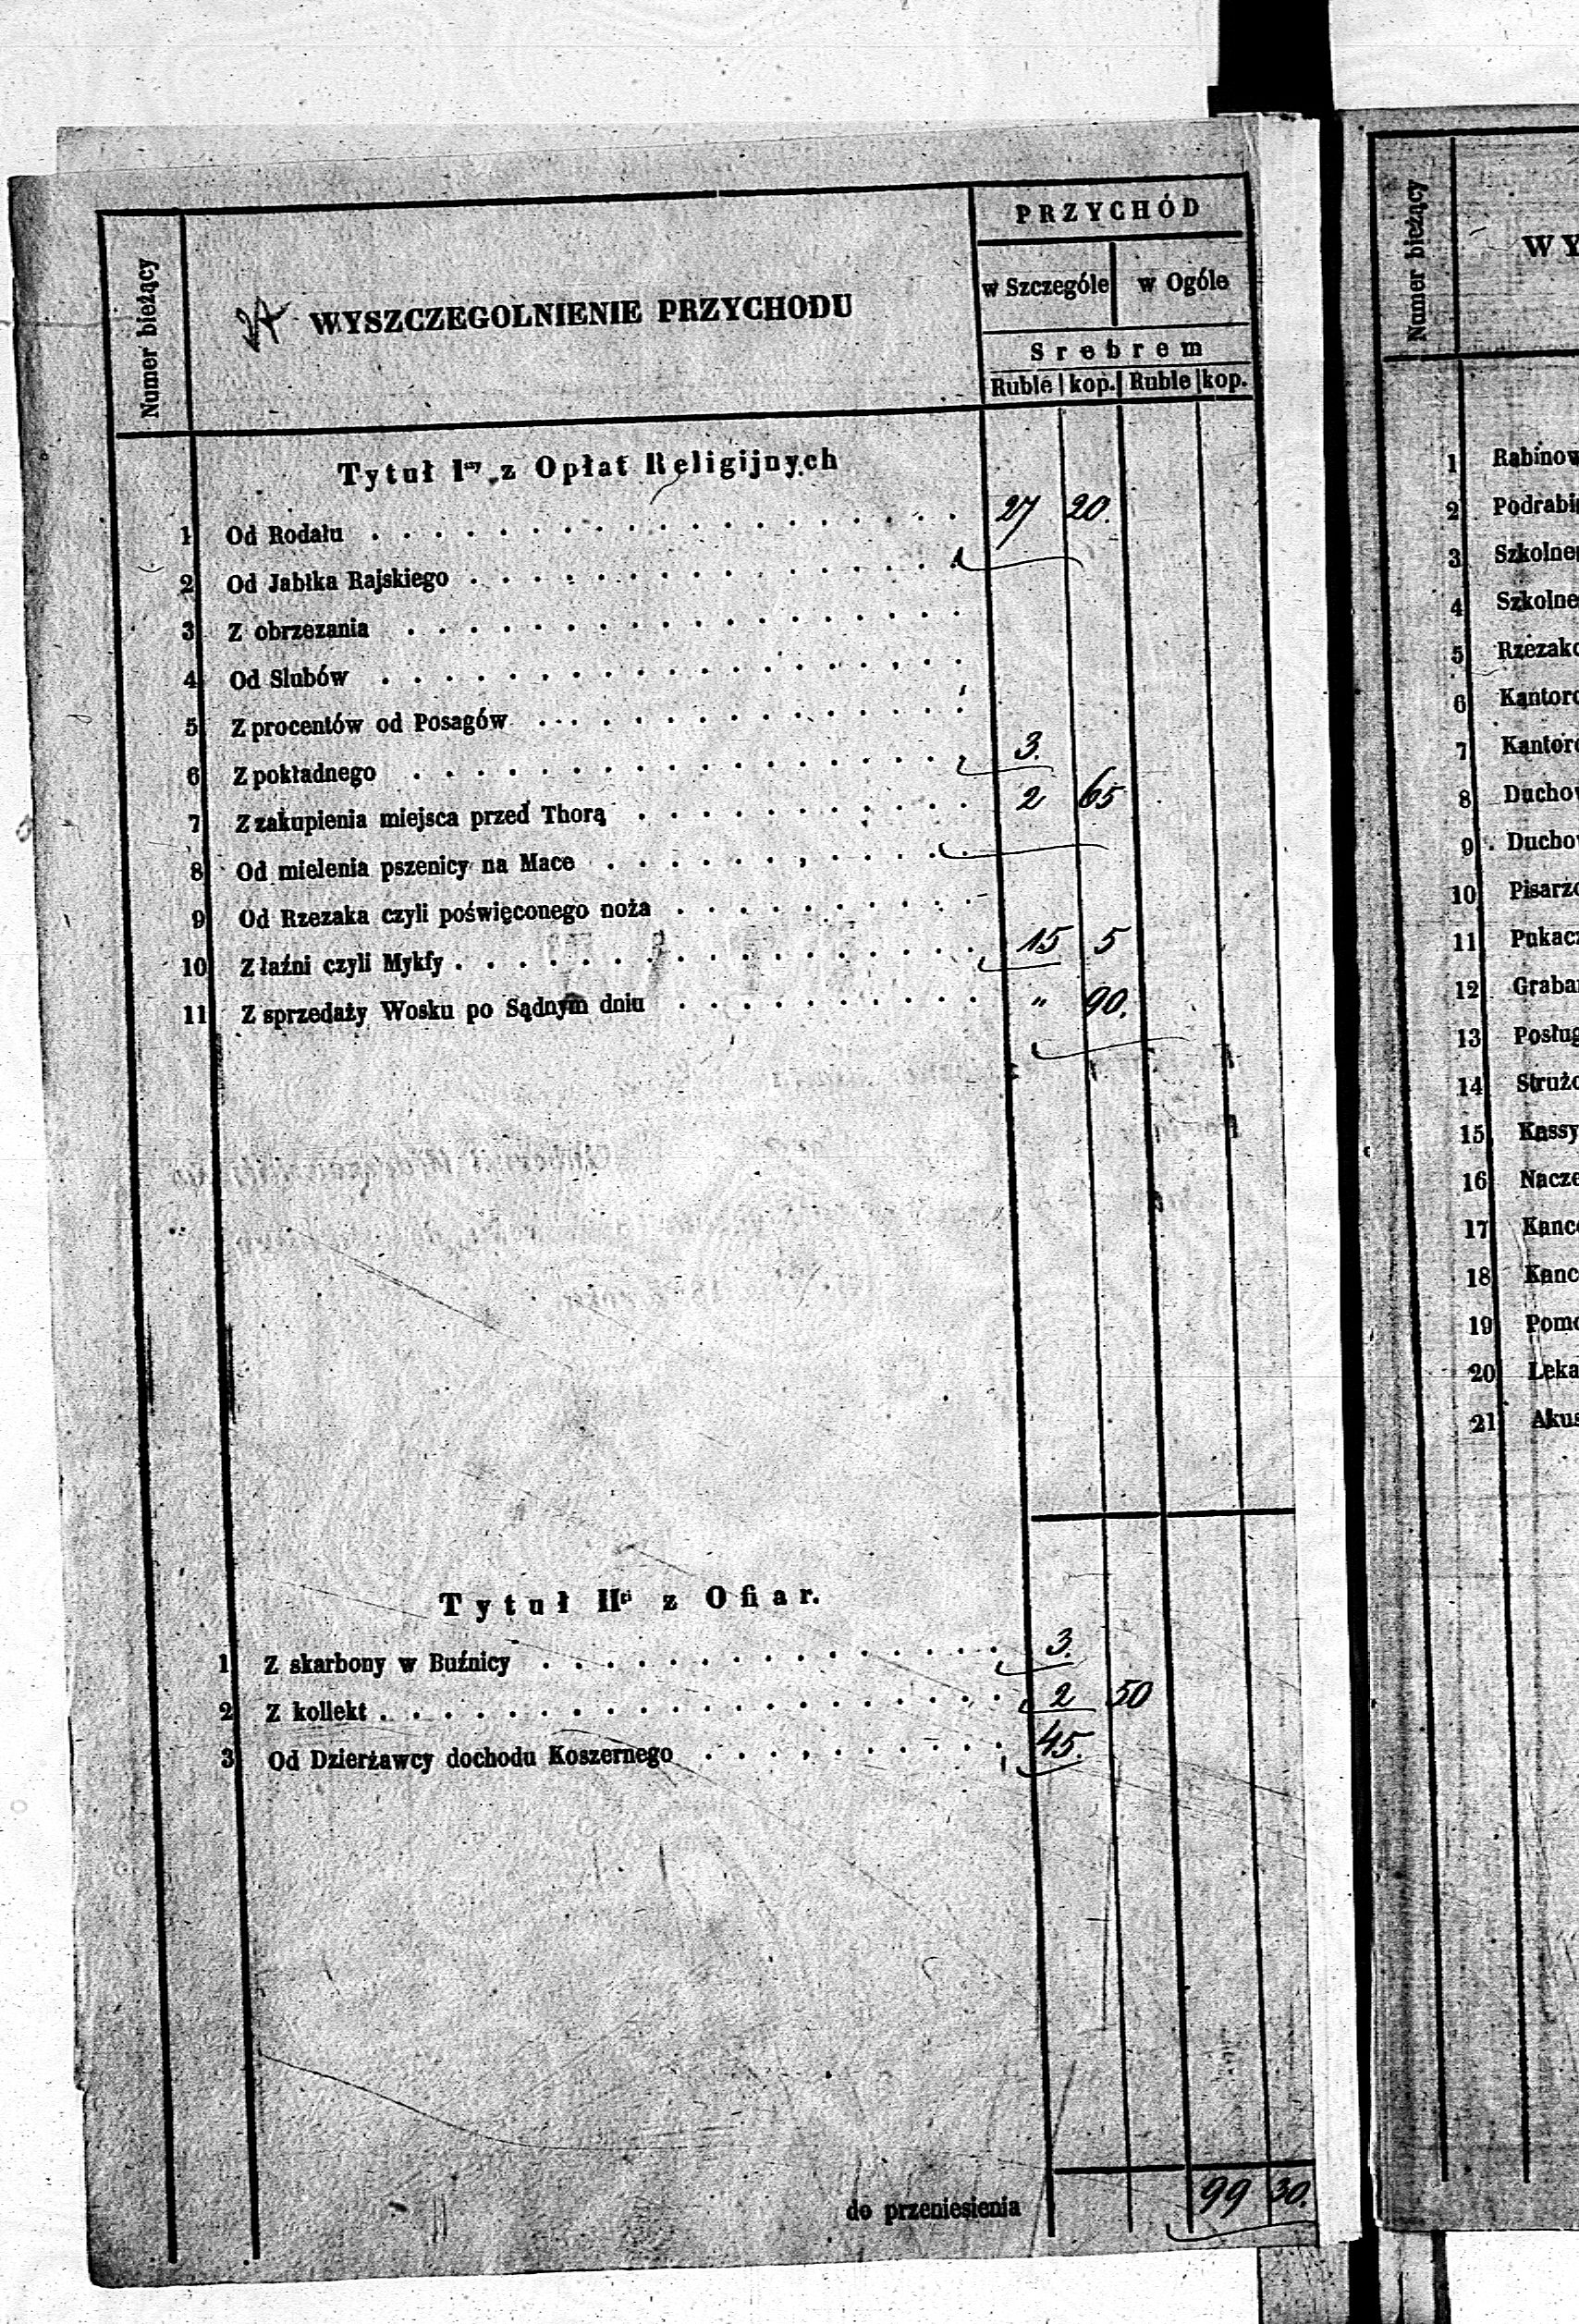 PRZYCHÓD
w Szczególe w Ogóle
Numer bieżący
24 WYSZCZEGOLNIENIE PRZYCHODU
Srebrem
Ruble kop. Ruble kop.
Tytuł Iszy z Opłat Religijnych
1 Od Rodału 27 20.
2 Od Jabłka Rajskiego
3 Z obrzezania
4 Od Slubów
5 Z procentów od Posagów
6 Z pokładnego 3.
7 Z zakupienia miejsca przed Thorą 2 65
8 Od mielenia pszenicy na Mace
9 Od Rzezaka czyli poświęconego noża
10 Z łaźni czyli Mykfy 15 5
11 Z sprzedaży Wosku po Sądnym dniu " 90.
Tytuł IIgi z Ofiar.
1 Z skarbony w Buźnicy 3.
2 Z kollekt 2 50
3 Od Dzierżawcy dochodu Koszernego 45.
do przeniesienia 99 30.
Numer bieżący
WY
1 Rabinow
2 Podrabi
3 Szkolne
4 Szkolne
5 Rzezako
6 Kantoro
7 Kantoro
8 Duchow
9 Duchow
10 Pisarzo
11 Pukacz
12 Grabar
13 Posług
14 Stružo
15 Kassy
16 Nacze
17 Kance
18 Kanc
19 Pomo
20 Leka
21 Akus